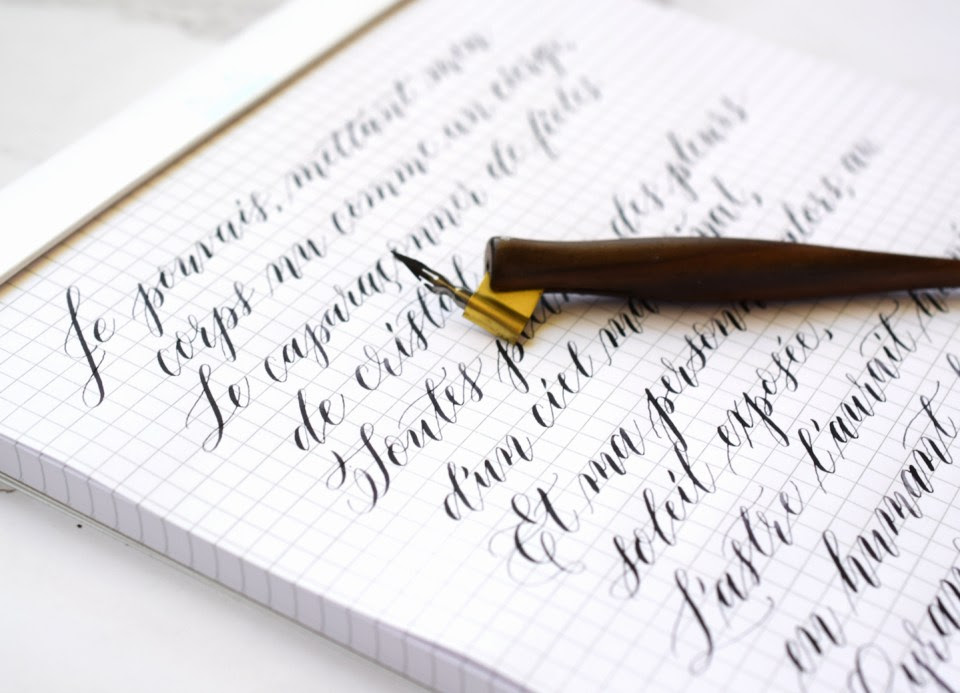 Je pouvais, mettant mon
corps nu comme un cierge,
Le caparaçonner de fioles
de cristal
Toutes des pleurs
d'un ciel
Et ma personne alors, au
soleil exposée,
L'astre l'aurait
en humant